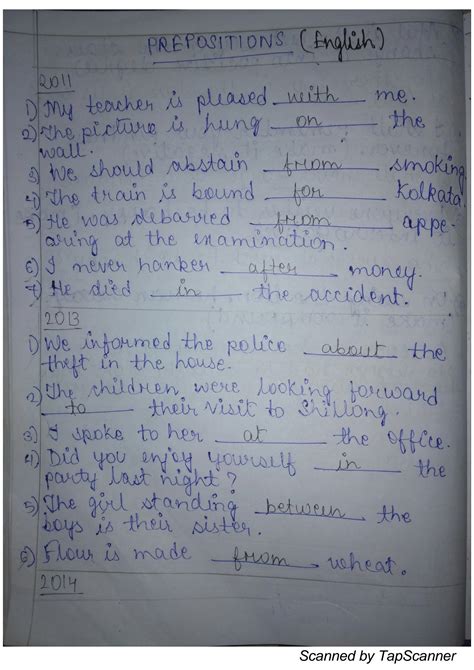 PREPOSITIONS (English)
2011
1) My teacher is pleased with me.
2) The picture is hung on the
wall.
3) We should abstain from smoking
4) The train is bound for Kolkata
5) He was debarred from appe-
aring at the examination.
6) I never hanker after money.
7) He died in the accident.
2013
1) We informed the police about the
theft in the house.
2) The children were looking forward
to their visit to Shillong.
3) I spoke to her at the office.
4) Did you enjoy yourself in the
party last night?
5) The girl standing between the
boys is their sister.
6) Flour is made from wheat.
2014
Scanned by TapScanner